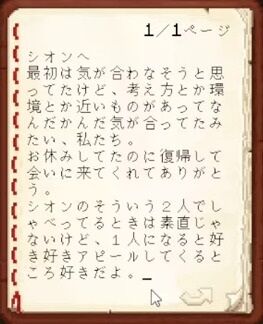 1/1ページ
シオンへ
最初は気が合わなそうと思
ってたけど、考え方とか環
境とか近いものがあってな
んだかんだ気が合ってたみ
たい、私たち。
お休みしてたのに復帰して
会いに来てくれてありがと
う。
シオンのそういう２人でし
ゃべってるときは素直じゃ
ないけど、１人になると好
き好きアピールしてくると
ころ好きだよ。_